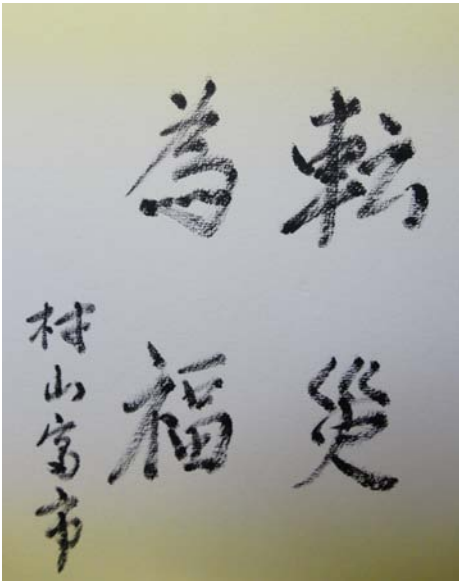 転災
為福
村山富市